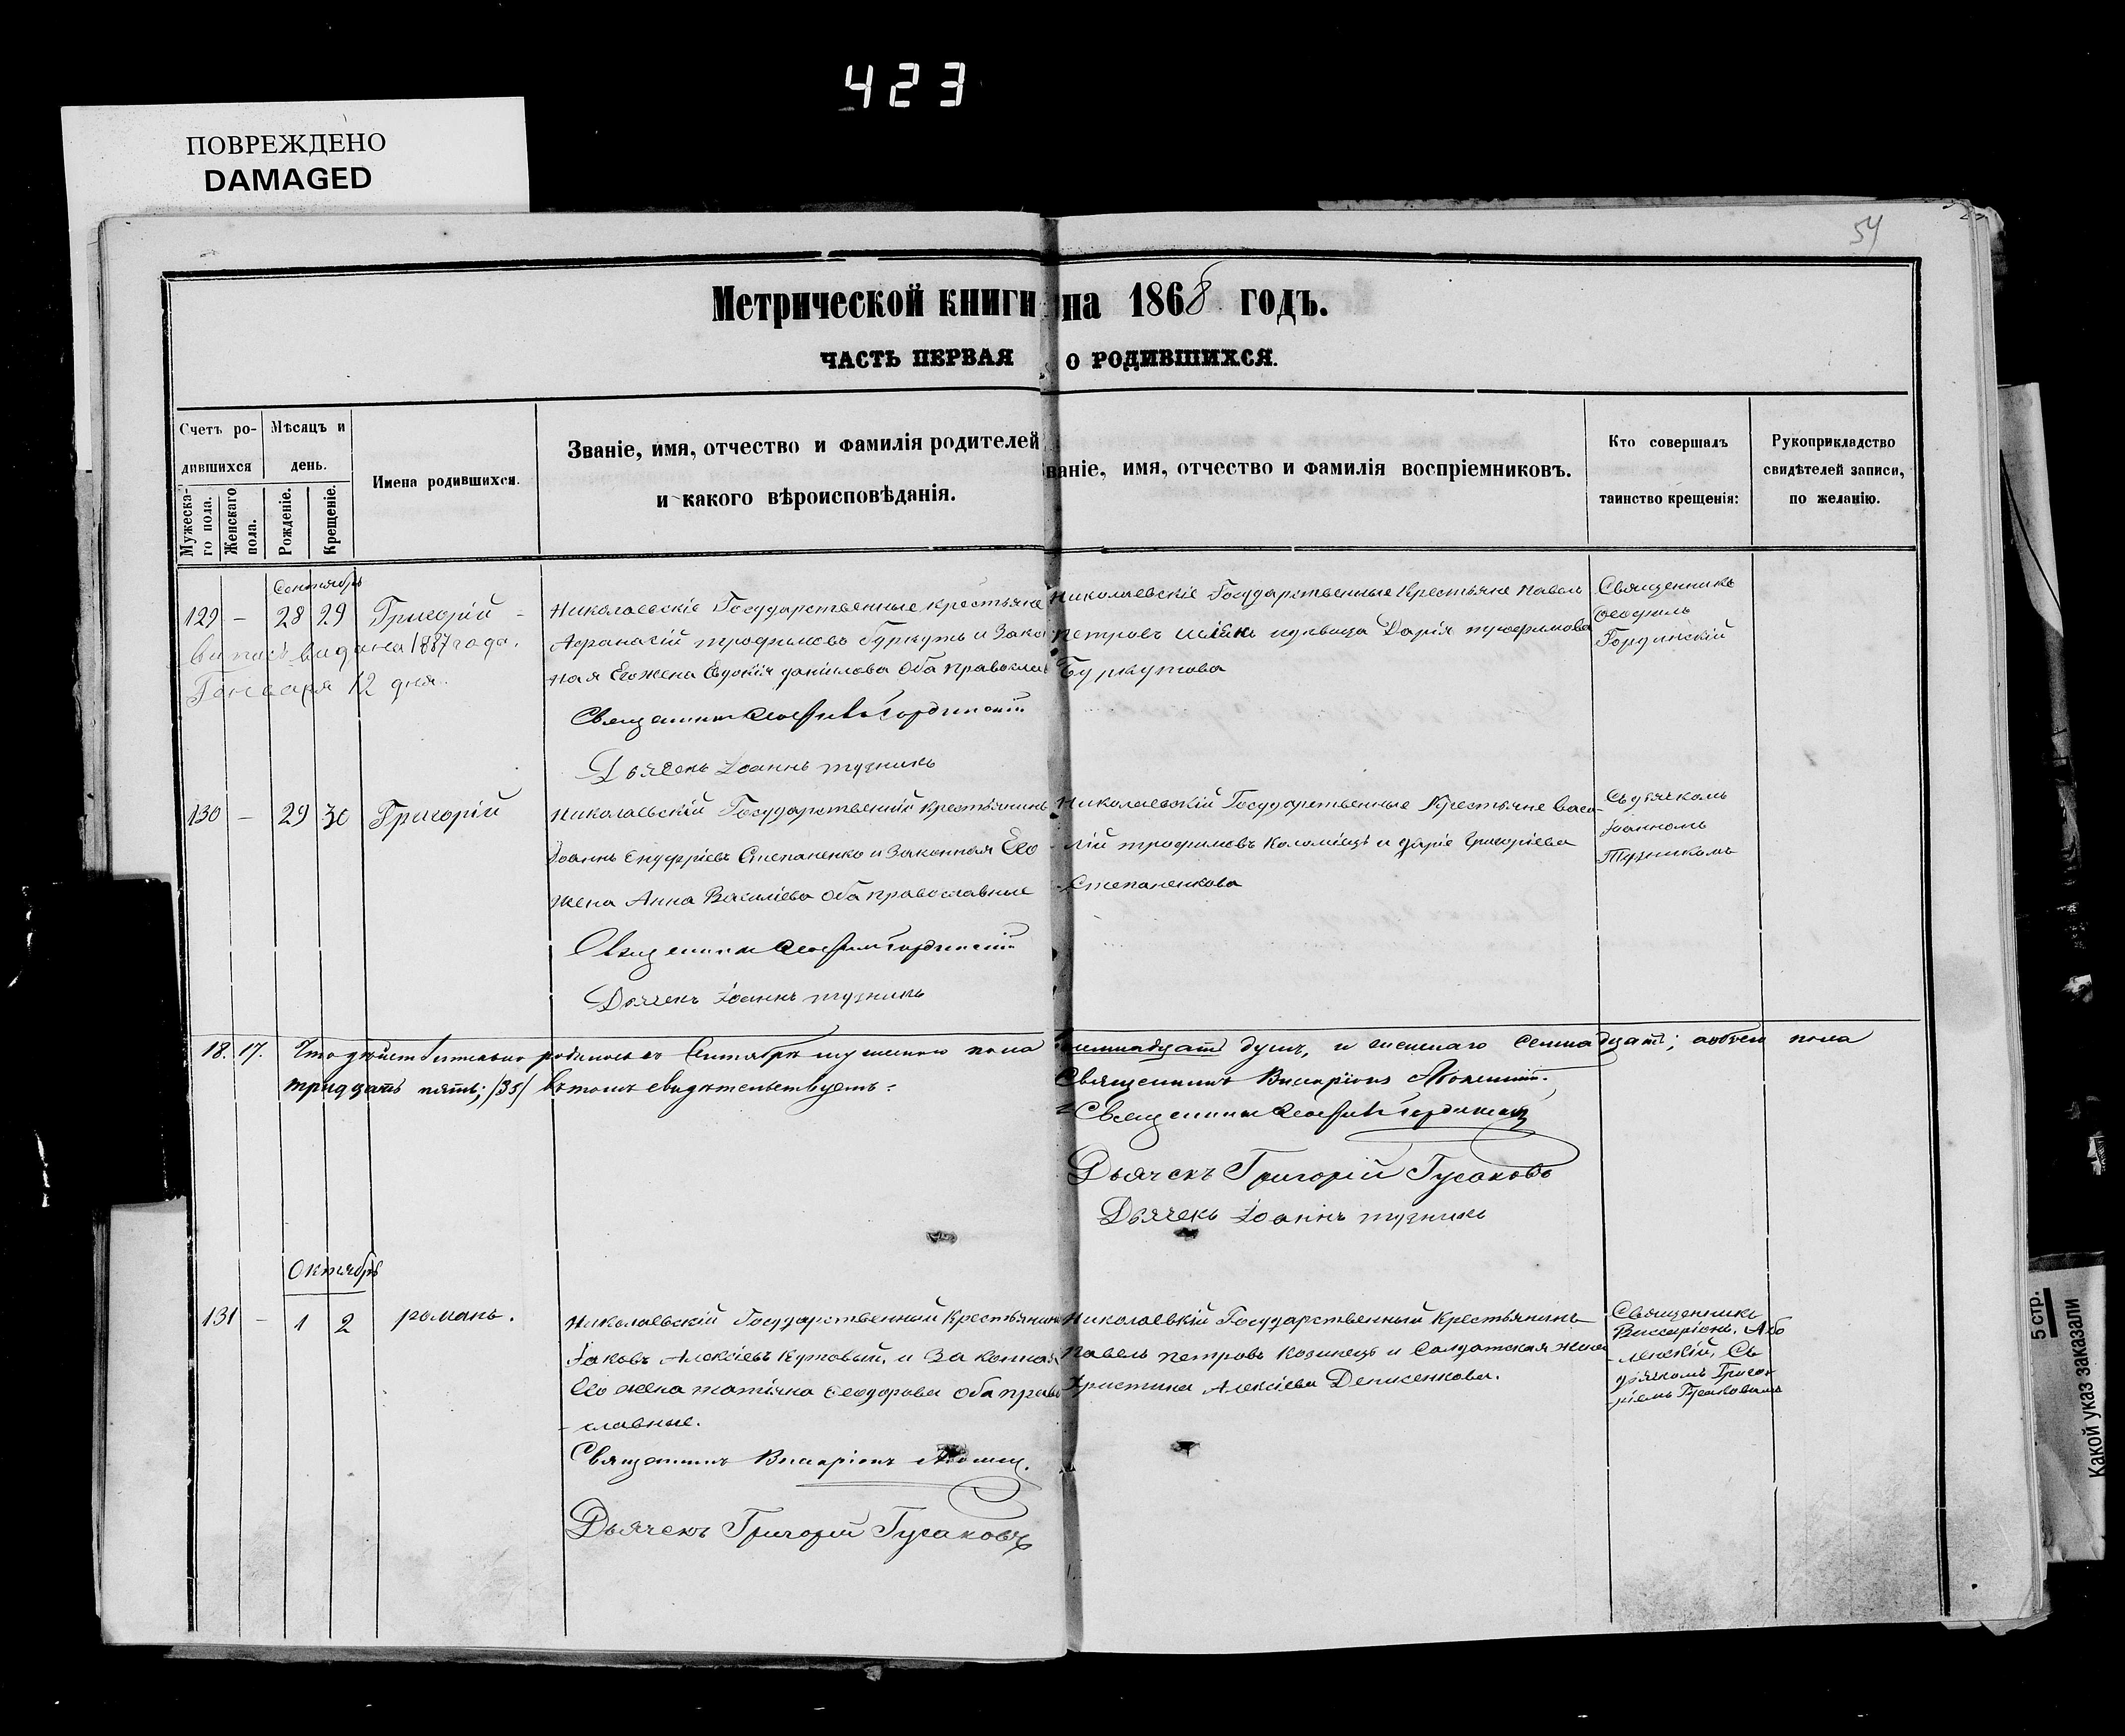 423
ПОВРЕЖДЕНО
DAMAGED
54
Метрической книги на 1868 годъ.
ЧАСТЬ ПЕРВАЯ О РОДИВШИХСЯ.
Счетъ ро-
дившихся
Мужеска-
го пола.
Женскаго
пола.
Мѣсяцъ и
день.
Рожденіе.
Крещеніе.
Имена родившихся.
Званіе, имя, отчество и фамилія родителей
и какого вѣроисповѣданія.
ваніе, имя, отчество и фамилія воспріемниковъ.
Кто совершалъ
таинство крещенія:
Рукоприкладство
свидѣтелей записи,
по желанію.
Сентябрь
129 - 28 29 Григорій -
выпись видана 1887 года.
Генваря 12 дня.
Николаевскіе Государственные крестьяне
Афанасій трофимовъ Буркутъ и Зако
ная Его жена Евдокія данилова Оба православ
Священникъ Гординскій
Дьячекъ Іоаннъ тузникъ
Николаевскіе Государственные Крестьяне Павелъ
петровъ дѣвица Дарія трофимова
Буркутова
Священникъ
Феофилъ
Гординскій
130 - 29 30 Григорій
Николаевскій Государственный крестьянинъ
Іоаннъ Степаненко и Законная Его
жена Анна Василіева Оба православные
Священникъ Гординскій
Дьячекъ Іоаннъ тузникъ
Николаевскій Государственные Крестьяне Васи-
лій трофимовъ Коломіецъ и даріе григоріева
Степаненкова
Съ дьячкомъ
Іоанномъ
Тузникомъ
18. 17. Что дѣйствительно родилось въ Сентябрѣ мужескаго пола восемнадцать душъ, и женскаго семнадцать; обоего пола
тридцать пять; /35/ въ томъ свидѣтельствуемъ.
Священникъ Виссаріонъ
Священникъ Гординскій
Дьячекъ Григорій Гусаковъ
Дьячекъ Іоаннъ тузникъ
Октябрь
131 - 1 2 романъ.
Николаевскій Государственный Крестьянинъ
Іаковъ Алексіевъ Кутовый, и Законная
Его жена татіяна Феодорова Оба право
-славные.
Священникъ Виссаріонъ
Дьячекъ Григорій Гусаковъ
Николаевкій Государственный Крестьянинъ
Павелъ петровъ Козинецъ и Солдатская жена
Христина Алексіева Денисенкова.
Священникъ
Виссаріонъ. Або
-ленскій, Съ
дьячкомъ Григо-
-ріемъ Гусаковымъ
5 стр.
Какой указ заказали